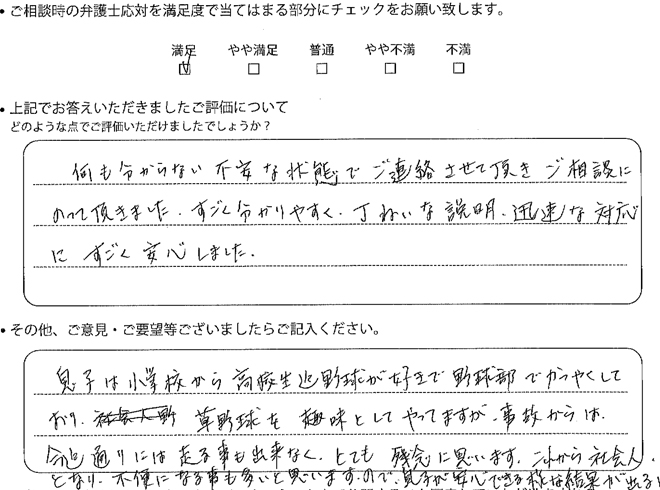 • ご相談時の弁護士応対を満足度で当てはまる部分にチェックをお願い致します。
満足 やや満足 普通 やや不満 不満
• 上記でお答えいただきましたご評価について
どのような点でご評価いただけましたでしょうか？
何も分からない不安な状態でご連絡させて頂きご相談に
のって頂きました。すごく分かりやすく、丁ねいな説明、迅速な対応
にすごく安心しました。
• その他、ご意見・ご要望等ございましたらご記入ください。
息子は小学校から高校生迄野球が好きで野球部でかつやくして
おり、草野球を趣味としてやってますが、事故からは、
今迄通りには走る事も出来なく、とても残念に思います。これから社会人
となり、不便になる事も多いと思いますので、息子が安心できる様な結果が出る